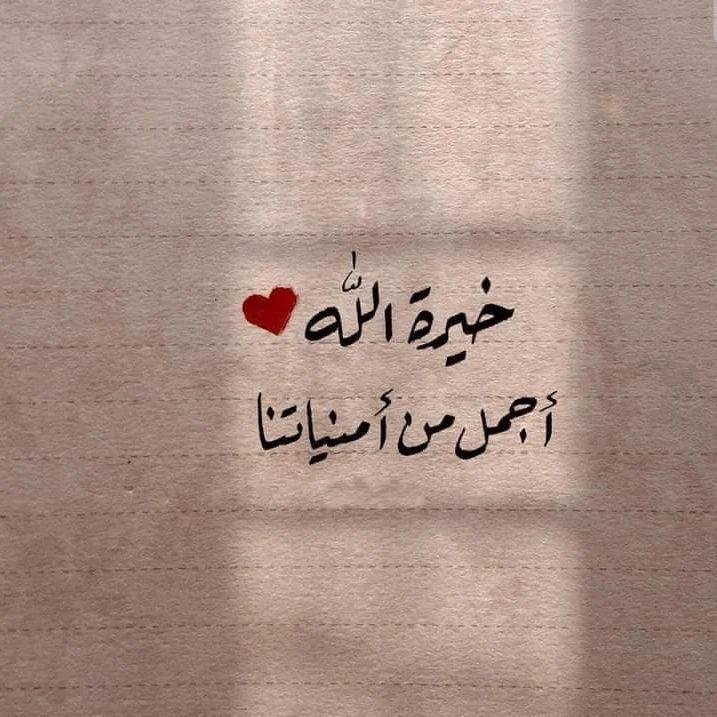 خيرة الله ♥
أجمل من أمنياتنا